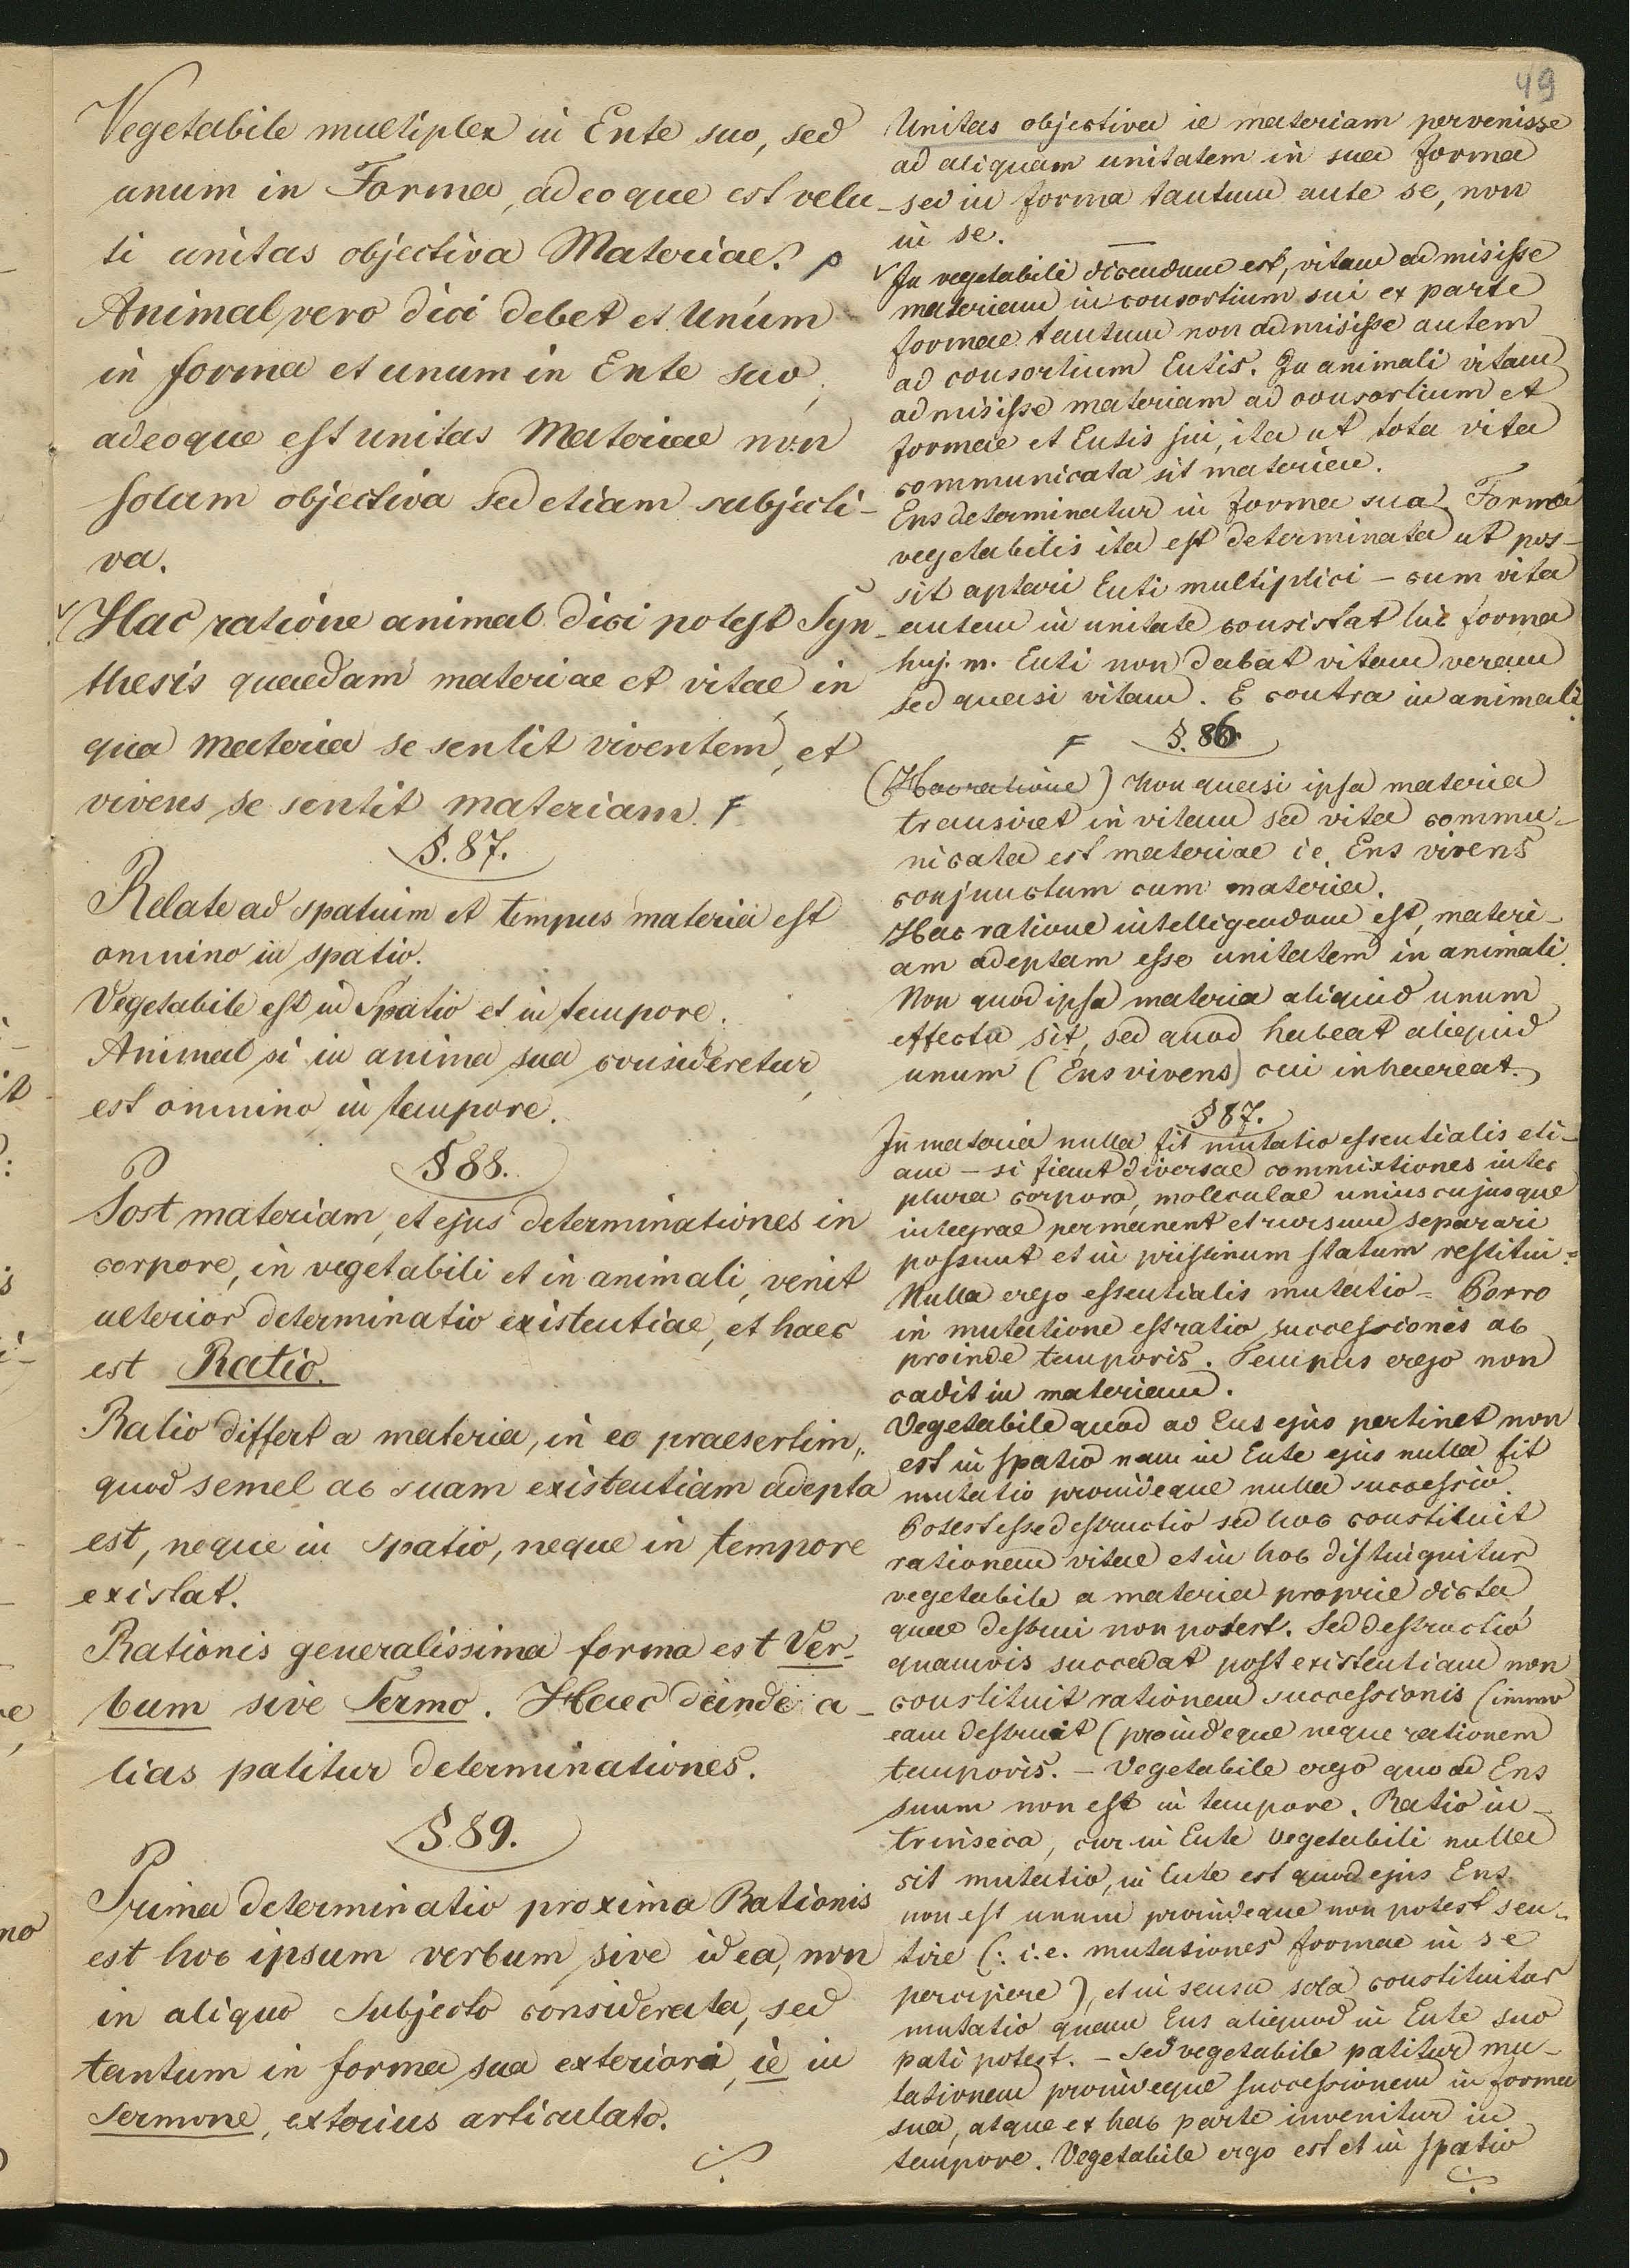 49
Vegetabile multiplex in Ente suo, sed
unum in Forma, adeoque est velu-
ti unitas objectiva Materiae.
Animal vero dici debet et Unum
in forma et unum in Ente suo,
adeoque est unitas Materiae non
solum objectiva sed etiam subjecti-
va.
Hac ratione animal dici potest Syn-
thesis quaedam materiae et vitae, in
qua materia se sentit viventem, et
vivens se sentit materiam. F
§. 87.
Relate ad spatium et tempus materia est
omnino in spatio.
Vegetabile est in Spatio et in tempore.
Animal si in anima sua consideretur,
est omnino in tempore.
§ 88.
Post materiam, et ejus determinationes in
corpore, in vegetabili et in animali, venit
ulterior determinatio existentiae, et haec
est Ratio.
Ratio differt a materia, in eo praesertim,
quod semel ac suam existentiam adepta
est, neque in Spatio, neque in tempore
existat.
Rationis generalissima forma est Ver-
bum sive Sermo. Haec deinde a-
lias patitur determinationes.
§ 89.
Prima determinatio proxima Rationis
est hoc ipsum verbum sive idea, non
in aliquo Subjecto considerata, sed
tantum in forma sua exteriori, ie in
Sermone, exterius articulato.
Unitas objectiva ie materiam pervenisse
ad aliquam unitatem in sua forma
sed in forma tantum ante se, non
in se.
In vegetabili dicendum est, vitam admisisse
materiam in consortium sui ex parte
formae tantum non admisisse autem
ad consortium Entis. In animali vitam
admisisse materiam ad consortium et
formae et Entis sui, ita ut tota vita
communicata sit materiae.
Ens determinatur in forma sua. Forma
vegetabilis ita est determinata ut pos-
sit aptari Enti multiplici – cum vita
autem in unitate consistat hic forma
huj. m. Enti non dabat vitam veram
sed quasi vitam. E contra in animali.
F §. 86
(Hac ratione) Non quasi ipsa materia
transiret in vitam sed vita commu-
nicata est materiae ie. Ens vivens
conjunctum cum materia.
Hac ratione intelligendum est, materi-
am adeptam esse unitatem in animali.
Non quod ipsa materia aliquid unum
effecta sit, sed quod habeat aliquid
unum (Ens vivens) cui inhaereat.
§ 87.
In materia nulla fit mutatio essentialis eti-
am – si fiant diversae commixtiones inter
plura corpora, moleculae uniuscujusque
integrae permanent et rursum separari
possunt et in pristinum statum restitui.
Nulla ergo essentialis mutatio – Porro
in mutatione est ratio successionis ac
proinde temporis. Tempus ergo non
cadit in materiam.
Vegetabile quod ad Ens ejus pertinet non
est in spatio nam in Ente ejus nulla fit
mutatio proindeque nulla successio.
Potest esse destructio sed hoc constituit
rationem vitae et in hoc distinguitur
vegetabile a materia proprie dicta,
quae destrui non potest. Sed destructio
quamvis succedat post existentiam non
constituit rationem successionis (immo
eam destruit (proindeque neque rationem
temporis. – Vegetabile ergo quoad Ens
suum non est in tempore. Ratio in-
trinseca, cur in Ente vegetabili nulla
sit mutatio, in Ente est quod ejus Ens
non est unum proindeque non potest sen-
tire (: i.e. mutationes formae in se
percipere), et in sensu sola constituitur
mutatio quam Ens aliquod in Ente suo
pati potest. – Sed vegetabile patitur mu-
tationem proindeque successionem in forma
sua, atque ex hac parte invenitur in
tempore. Vegetabile ergo est et in spatio